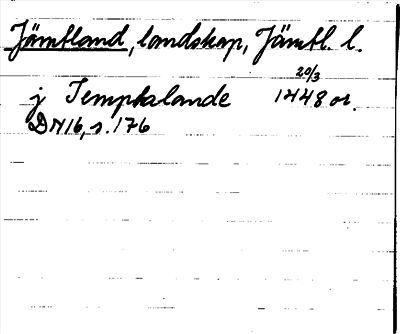 Jämtland, landskap, Jämtl. l.
20/3
j Jemptalande 1448 or.
DN 16, s. 176